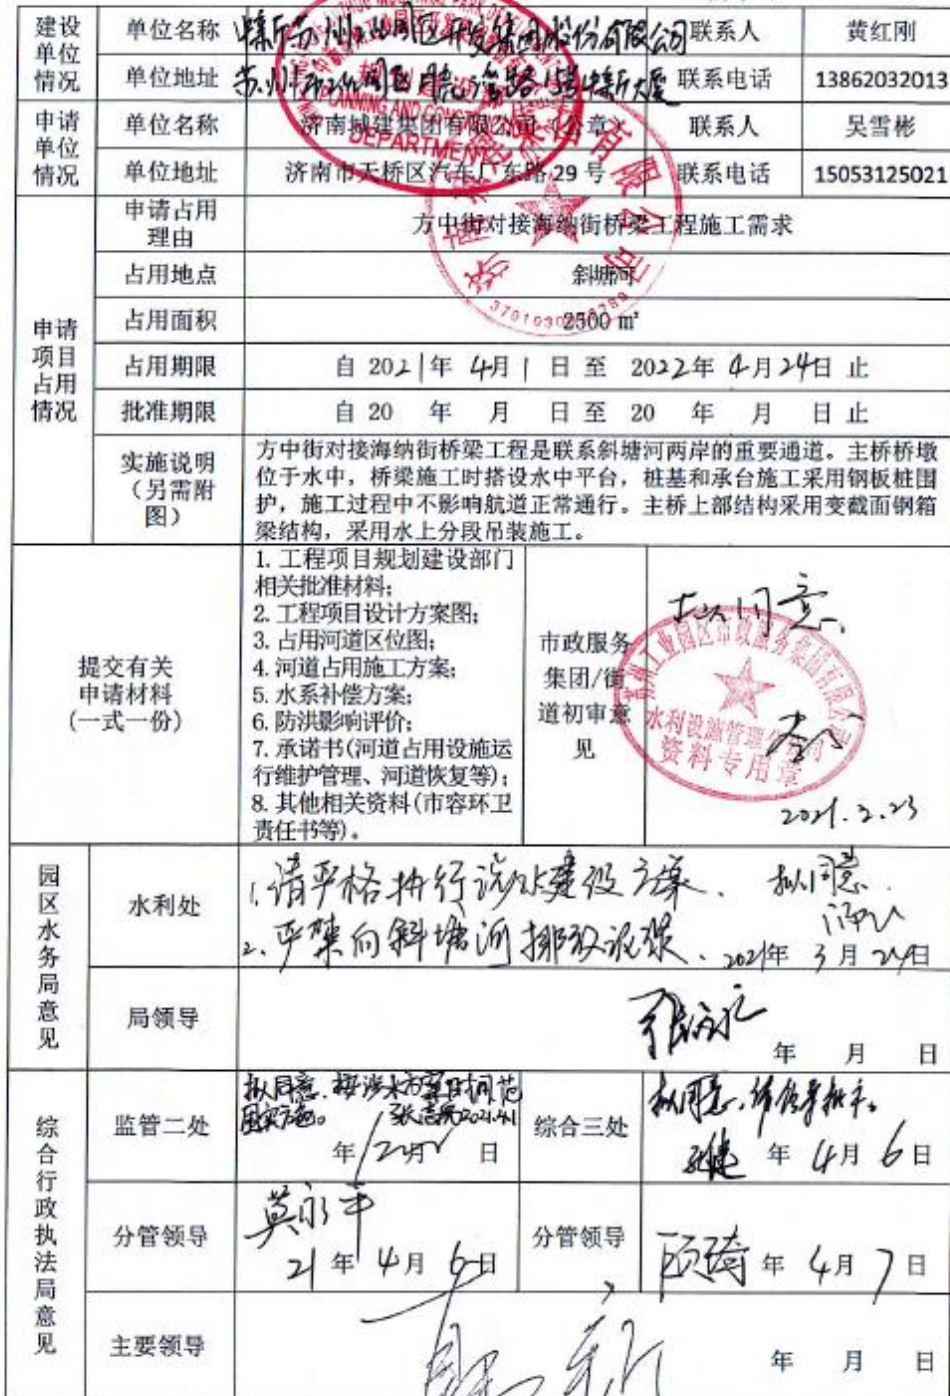 建设单位情况 单位名称 中新苏州工业园区开发集团股份有限公司 联系人 黄红刚
单位地址 苏州市工业园区月亮湾路15号中新大厦 联系电话 13862032013
申请单位情况 单位名称 济南城建集团有限公司（公章） 联系人 吴雪彬
单位地址 济南市天桥区汽车厂东路29号 联系电话 15053125021
申请项目占用情况
申请占用理由 方中街对接海纳街桥梁工程施工需求
占用地点 斜塘河
占用面积 2500 m²
占用期限 自 2021年 4月1日 至 2022年 4月24日 止
批准期限 自 20 年 月 日 至 20 年 月 日 止
实施说明（另需附图）
方中街对接海纳街桥梁工程是联系斜塘河两岸的重要通道。主桥桥墩
位于水中，桥梁施工时搭设水中平台，桩基和承台施工采用钢板桩围
护，施工过程中不影响航道正常通行。主桥上部结构采用变截面钢箱
梁结构，采用水上分段吊装施工。
提交有关
申请材料
(一式一份)
1. 工程项目规划建设部门
相关批准材料;
2. 工程项目设计方案图;
3. 占用河道区位图;
4. 河道占用施工方案;
5. 水系补偿方案;
6. 防洪影响评价;
7. 承诺书(河道占用设施运
行维护管理、河道恢复等);
8. 其他相关资料(市容环卫
责任书等)。
市政服务
集团/街
道初审意
见
拟同意
苏州工业园区市政服务集团有限公司
水利设施管理分公司
资料专用章
2021.3.23
园区水务局意见
水利处
1. 请严格执行涉水建设方案、拟同意
2. 严禁向斜塘河排放泥浆、2021年 3月 24日
局领导 年 月 日
综合行政执法局意见
监管二处 拟同意，按涉水方案时间范
围实施。 2021.4.1
年 月 日
综合三处 拟同意， 年 4月 6日
分管领导 莫永平 21年 4月 6日
分管领导 顾琦 年 4月 7日
主要领导 年 月 日
PLANNING AND CONSTRUCTION
DEPARTMENT